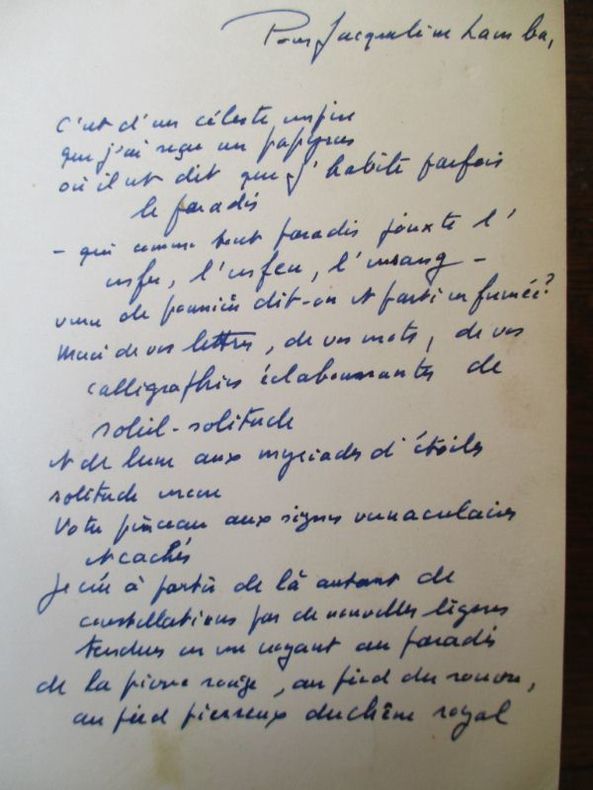 Pour Jacqueline Lamba,
C'est d'un céleste empire
que j'ai reçu un papyrus
où il est dit que j'habite parfois
le paradis
– qui comme tout paradis jouxte l'
enfer, l'enfeu, l'
de dit-on et parti en fumée?
Merci de vos lettres, de vos mots, de vos
calligraphies éclaboussantes de
soleil-solitude
et de lune aux myriades d'étoiles
solitude encore
Votre pinceau aux signes vernaculaires
et cachés
Je crée à partir de là autant de
constellations par de nouvelles lignes
tendues en me voyant au paradis
de la pierre rouge, au pied du
au pied pierreux du chêne royal